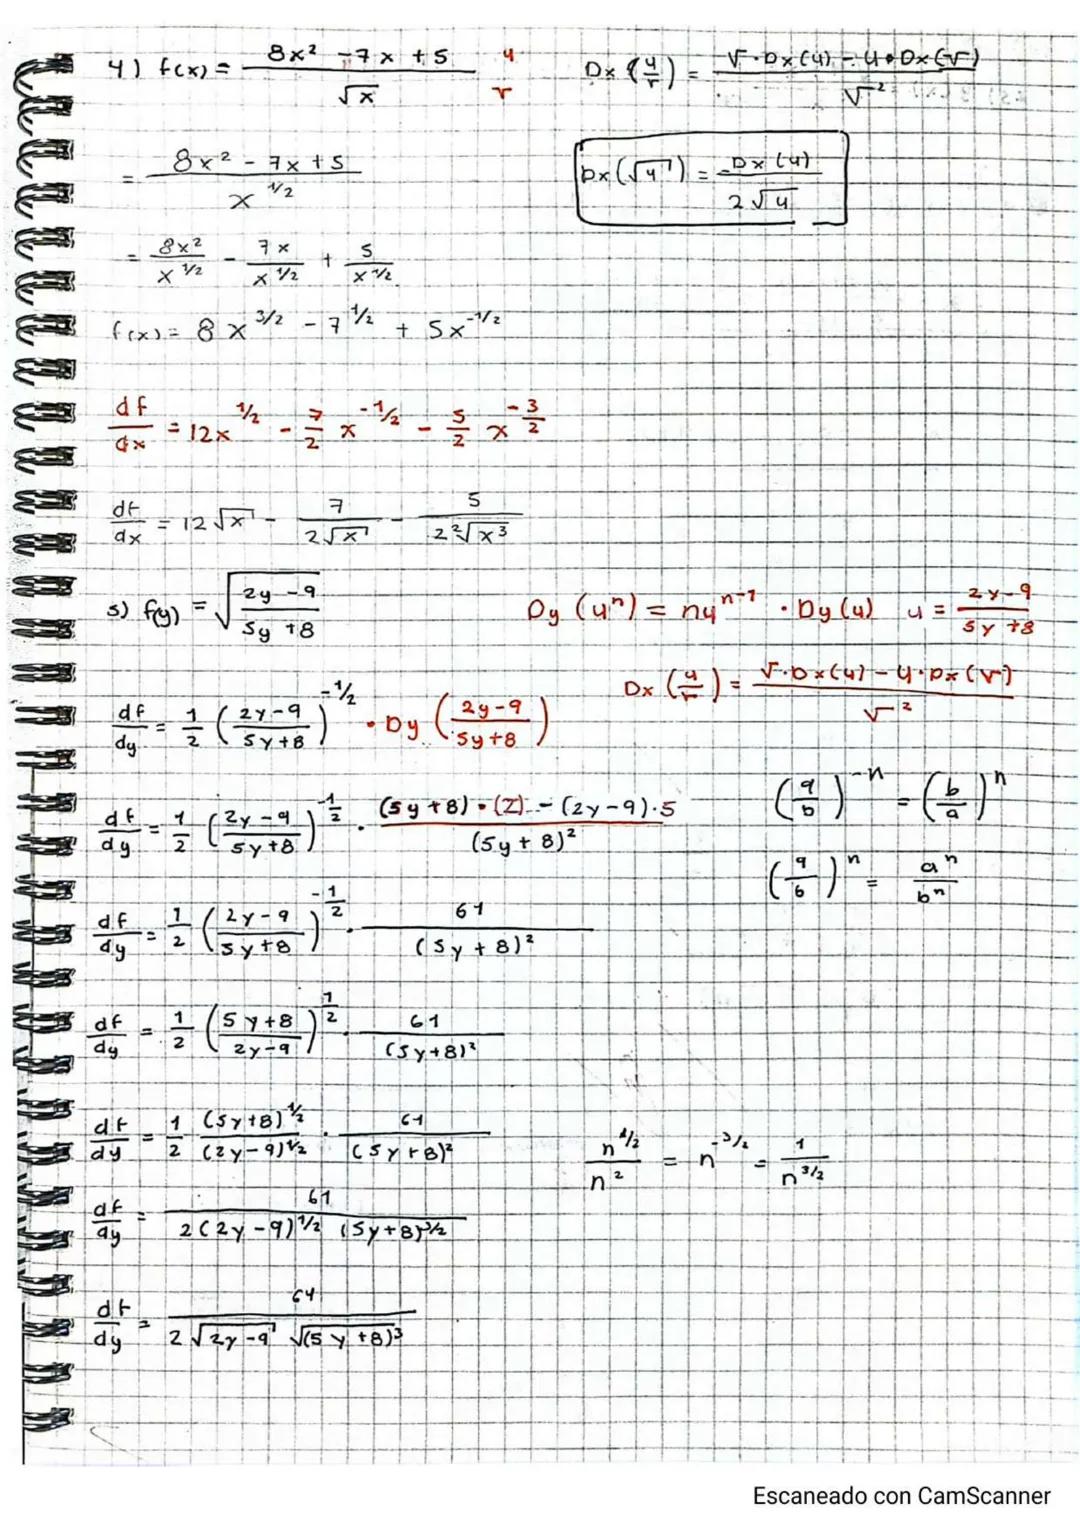 4) f(x) = (8x² - 7x + 5)/√x   u/v   Dx (u/v) = (v·Dx(u) - u·Dx(v))/v²
= (8x² - 7x + 5)/x^(1/2)   Dx(√u) = Dx(u)/(2√u)
= 8x²/x^(1/2) - 7x/x^(1/2) + 5/x^(1/2)
f(x) = 8x^(3/2) - 7^(1/2) + 5x^(-1/2)
df/dx = 12x^(1/2) - 7/2 x^(-1/2) - 5/2 x^(-3/2)
df/dx = 12√x - 7/(2√x) - 5/(2 ²√x³)
5) f(y) = √((2y - 9)/(5y + 8))   Dy (uⁿ) = nuⁿ⁻¹ · Dy(u)   u = (2y - 9)/(5y + 8)
Dx (u/v) = (v·Dx(u) - u·Dx(v))/v²
df/dy = 1/2 ((2y - 9)/(5y + 8))^(-1/2) · Dy ((2y - 9)/(5y + 8))
(a/b)⁻ⁿ = (b/a)ⁿ
df/dy = 1/2 ((2y - 9)/(5y + 8))^(-1/2) · ((5y + 8)·(2) - (2y - 9)·5)/(5y + 8)²
(a/b)ⁿ = aⁿ/bⁿ
df/dy = 1/2 ((2y - 9)/(5y + 8))^(-1/2) · 61/(5y + 8)²
df/dy = 1/2 ((5y + 8)/(2y - 9))^(1/2) · 61/(5y + 8)²
df/dy = 1/2 (5y + 8)^(1/2)/(2y - 9)^(1/2) · 61/(5y + 8)²   n^(1/2)/n² = n^(-3/2) = 1/n^(3/2)
df/dy = 61/(2(2y - 9)^(1/2) (5y + 8)^(3/2))
df/dy = 61/(2√(2y - 9) √(5y + 8)³)
Escaneado con CamScanner